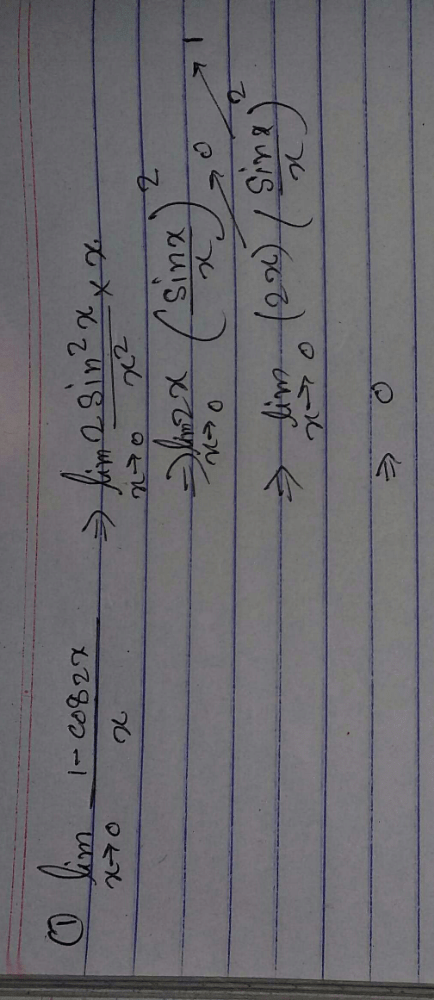 ① lim x→0 1-cos2x / x ⇒ lim x→0 2sin²x / x² × x
⇒ lim x→0 2x (sinx / x)²
⇒ lim x→0 (2x)→0 (sinx / x)²→1
⇒ 0